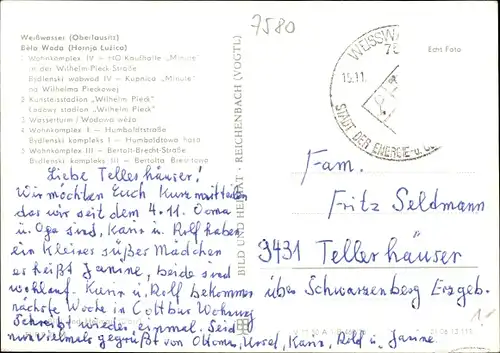 7580
Weißwasser (Oberlausitz)
Běła Woda (Hornja Łužica)
1 Wohnkomplex IV – HO Kaufhalle „Minute"
in der Wilhelm-Pieck-Straße
Bydlenski wobwod IV – Kupnica „Minute"
na Wilhelma Pieckowej
2 Kunsteisstadion „Wilhelm Pieck"
Lodowy stadion „Wilhelm Pieck"
3 Wasserturm / Wodowa wěža
4 Wohnkomplex I – Humboldtstraße
Bydlenski kompleks I – Humboldtowa hasa
5 Wohnkomplex III – Bertolt-Brecht-Straße
Bydlenski kompleks III – Bertolta Brechtowa
BILD UND HEIMAT · REICHENBACH (VOGTL)
Echt Foto
WEISSW
75
15.11.
STADT DER ENERGIE- u. GL
Liebe Tellerhäuser!
Wir möchten Euch kurz mitteilen
das wir seit dem 4.11. Ooma
u. Opa sind, Kanz u. Rolf haben
ein kleines süßes Mädchen
es heißt Janine, beide sind
wohlauf. Kanz u. Rolf bekommen
nächste Woche in Cottbus Wohnung
Schreibt wieder einmal. Seid
nun vielmals gegrüßt von Ursel, Kanz, Rolf u. Janine.
Fam.
Fritz Seldmann
9431 Tellerhäuser
über Schwarzenberg Erzgeb.
1-